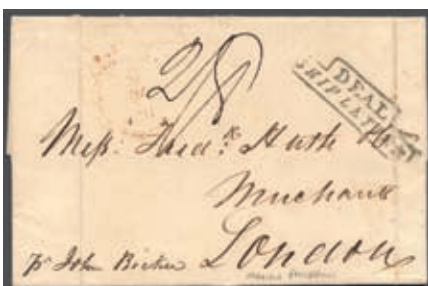 2/8
DEAL
SHIP LETTER
Mess.rs Fred.k Huth &
Merchants
London
pr John